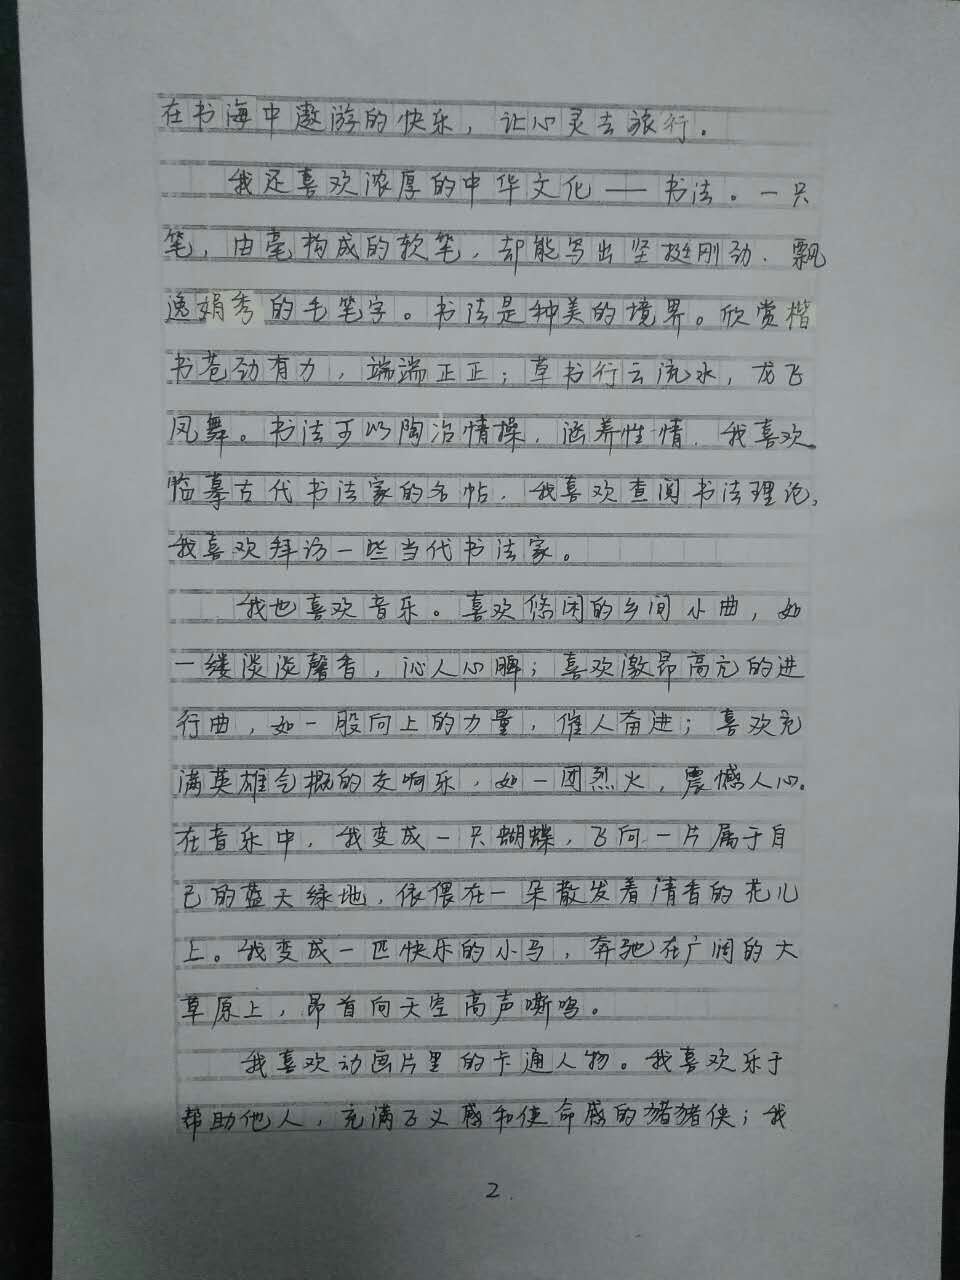 在书海中遨游的快乐，让心灵去旅行。
我还喜欢浓厚的中华文化——书法。一只
笔，由毫构成的软笔，却能写出坚挺刚劲、飘
逸娟秀的毛笔字。书法是种美的境界。欣赏楷
书苍劲有力，端端正正；草书行云流水，龙飞
凤舞。书法可以陶冶情操，涵养性情，我喜欢
临摹古代书法家的名帖，我喜欢查阅书法理论，
我喜欢拜访一些当代书法家。
我也喜欢音乐。喜欢悠闲的乡间小曲，如
一缕淡淡馨香，沁人心脾；喜欢激昂高亢的进
行曲，如一股向上的力量，催人奋进；喜欢充
满英雄气概的交响乐，如一团烈火，震憾人心。
在音乐中，我变成一只蝴蝶，飞向一片属于自
己的蓝天绿地，依偎在一朵散发着清香的花儿
上。我变成一匹快乐的小马，奔驰在广阔的大
草原上，昂首向天空高声嘶鸣。
我喜欢动画片里的卡通人物。我喜欢乐于
帮助他人，充满了义感和使命感的猪猪侠；我
2.